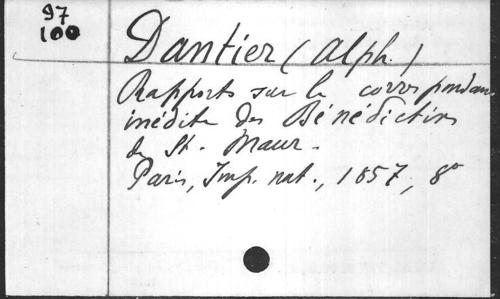 97
100
Dantier (Alph.)
Rapports sur la correspondan
inédite des Bénédictins
de St. Maur.
Paris, Imp. nat., 1857, 8º